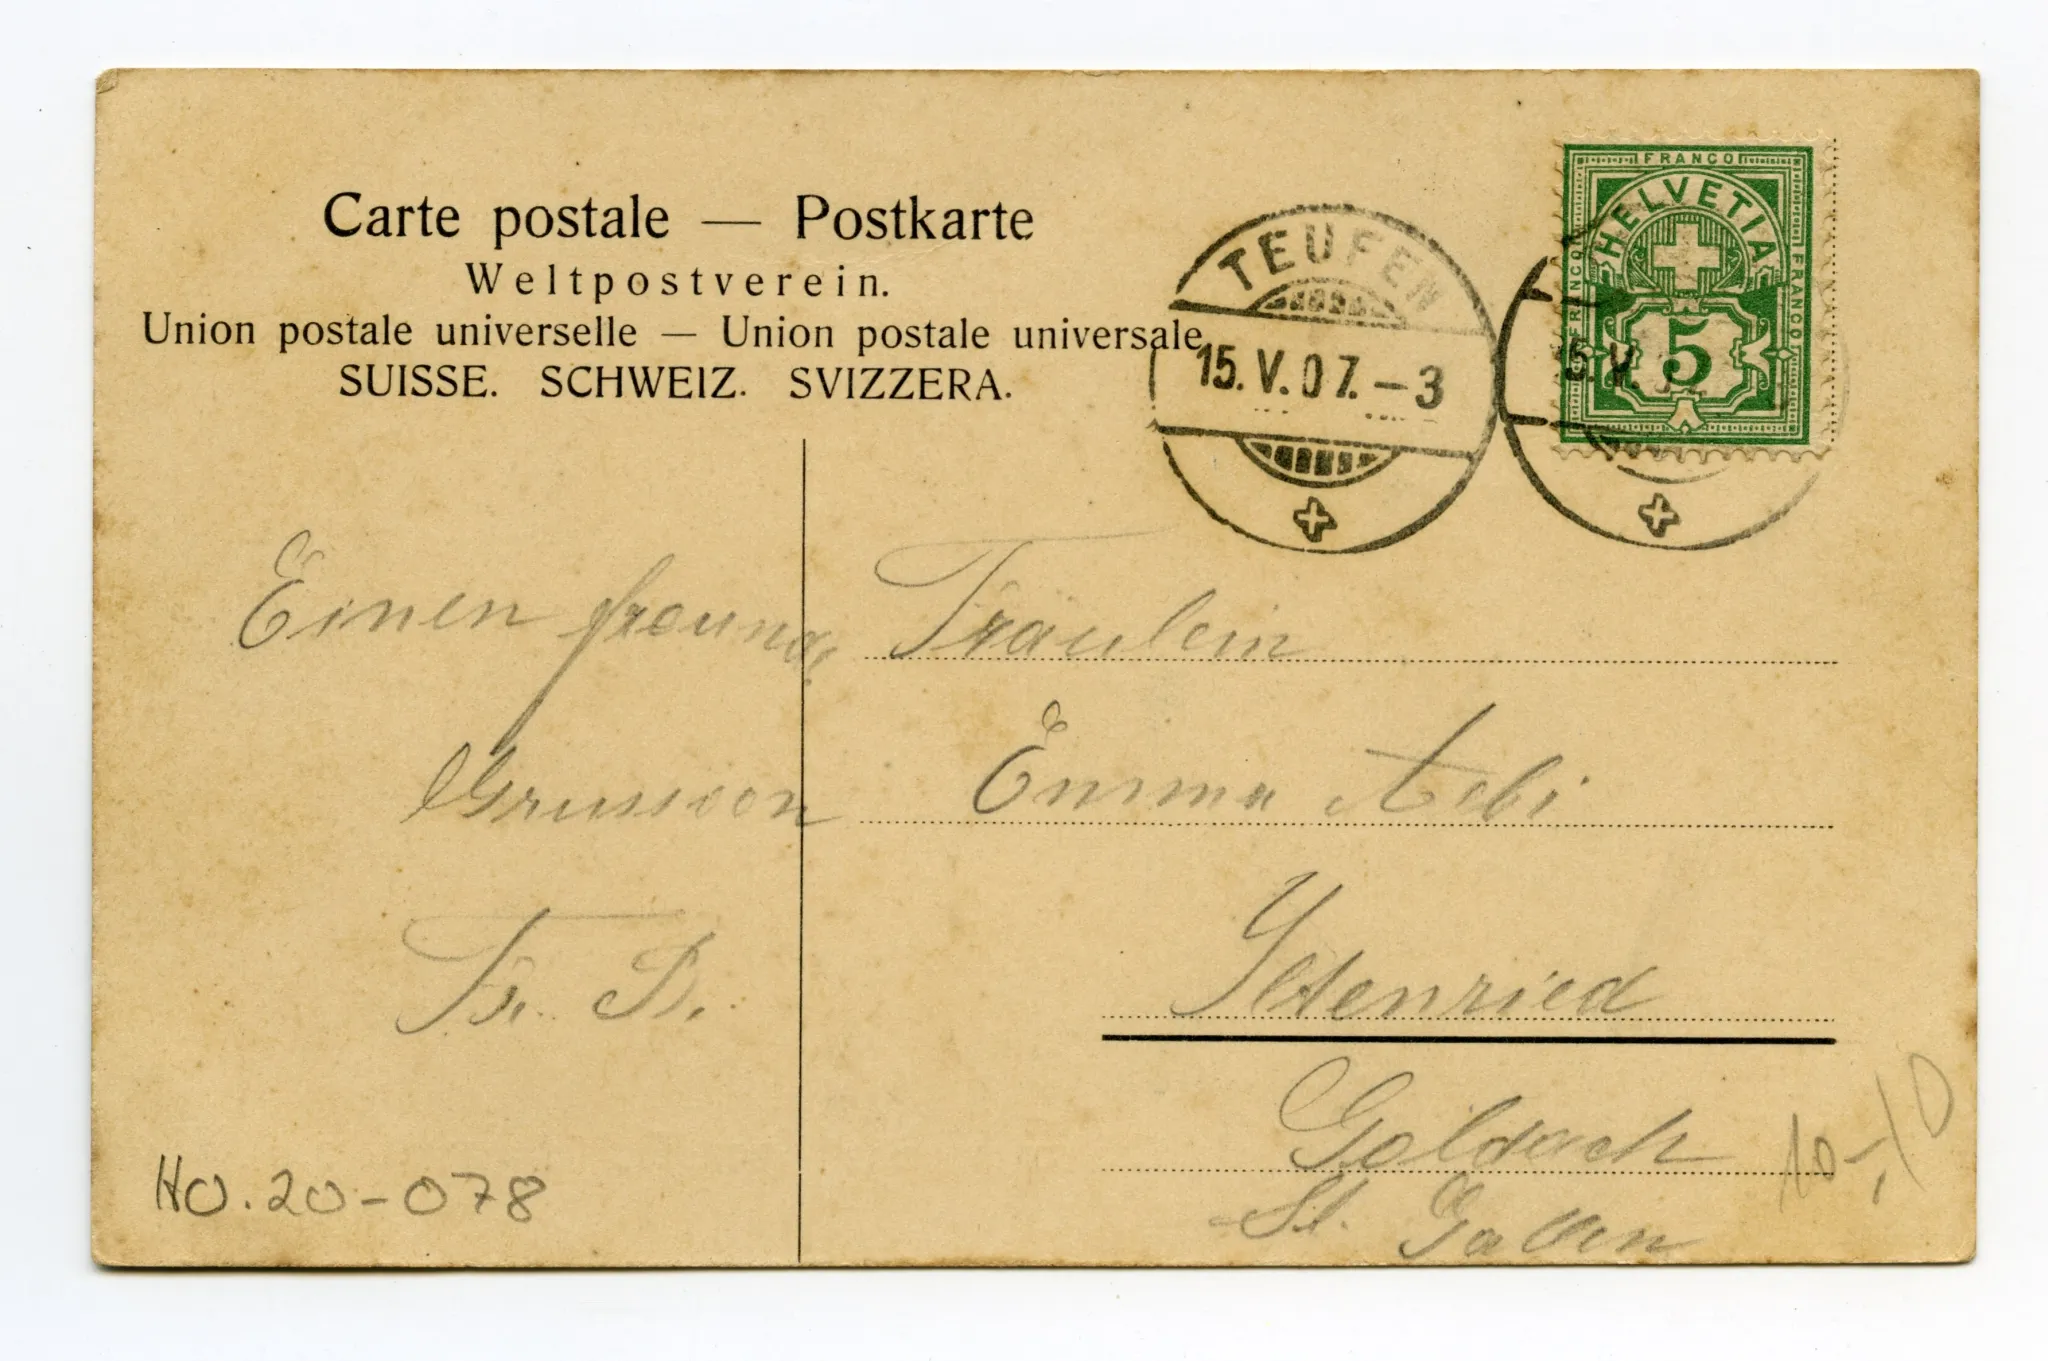 Carte postale — Postkarte
Weltpostverein.
Union postale universelle — Union postale universale
SUISSE. SCHWEIZ. SVIZZERA.
TEUFEN
15.V.07.–3
15.V.
FRANCO
FRANCO
FRANCO
HELVETIA
5
Einen freund,
Gruss von
Fr. B.
Fräulein
Emma Aebi
Iltenried
Goldach
St. Gallen
HO.20-078
10-,10